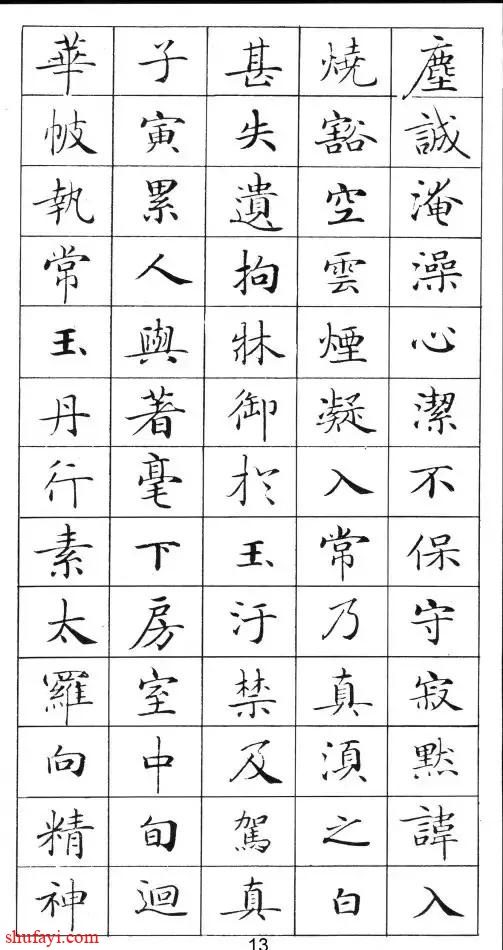 塵誠淹澡心潔不保守寂默諱入
燒豁空雲煙凝入常乃真湏之白
甚失遺拘牀御於玉汙禁及駕真
子寅累人與著毫下房室中旬迴
華帔執常玉丹行素太羅向精神
13
shufayi.com